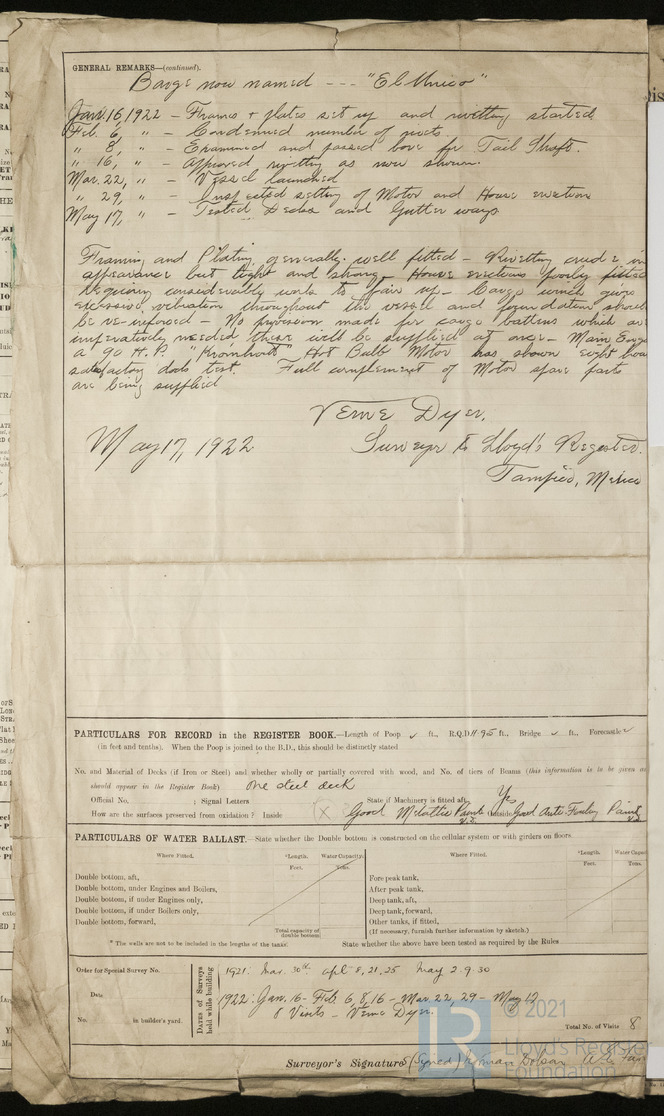 GENERAL REMARKS—(continued).
Barge now named --- "El Unico"
Jan. 16, 1922 – Frames + plates set up and rivetting started
Feb. 6, " – Condemned number of rivets.
" 8, " – Examined and passed bore for Tail Shaft.
" 16, " – Approved rivetting as now shown.
Mar. 22, " – Vessel launched
" 29, " – Inspected setting of Motor and House erection
May 17, " – Tested Decks and Gutter ways.
Framing and Plating, generally well fitted – Rivetting crude in
appearance but tight and strong – House erections poorly fitted
requiring considerably work to fair up – Cargo winch gives
excessive vibration throughout the vessel and foundation should
be re-inforced – No provision made for cargo battens which are
imperatively needed these will be supplied at once – Main Engine
a 90 H.P. "Kromhout" Hot Bulb Motor has shown eight hour
satisfactory dock test. Full complement of Motor spare parts
are being supplied
Verne Dyer,
May 17, 1922
Surveyor to Lloyd's Register.
Tampico, Mexico
PARTICULARS FOR RECORD in the REGISTER BOOK.—Length of Poop ✓ ft., R.Q.D. 11.95 ft., Bridge ✓ ft., Forecastle ✓
(in feet and tenths). When the Poop is joined to the B.D., this should be distinctly stated
No. and Material of Decks (if Iron or Steel) and whether wholly or partially covered with wood, and No. of tiers of Beams (this information is to be given as
should appear in the Register Book) One steel deck
Official No. ; Signal Letters State if Machinery is fitted aft. Yes
How are the surfaces preserved from oxidation? Inside Good Metallic Paint Outside Good Anti Fouling Paint
PARTICULARS OF WATER BALLAST.—State whether the Double bottom is constructed on the cellular system or with girders on floors.
Where Fitted. *Length. Water Capacity. Where Fitted. *Length. Water Capac
Feet. Tons. Feet. Tons.
Double bottom, aft, Fore peak tank,
Double bottom, under Engines and Boilers, After peak tank,
Double bottom, if under Engines only, Deep tank, aft,
Double bottom, if under Boilers only, Deep tank, forward,
Double bottom, forward, Other tanks, if fitted,
Total capacity of double bottom (If necessary, furnish further information by sketch.)
* The wells are not to be included in the lengths of the tanks. State whether the above have been tested as required by the Rules
Order for Special Survey No.
Date
No. in builder's yard.
DATES of Surveys held while building
1921. Mar. 30th Apl 8, 21, 25 May 2. 9. 30
1922: Jan. 16 – Feb 6, 8, 16 – Mar. 22, 29 – May 17
8 Visits – Verne Dyer.
Total No. of Visits 8
Surveyor's Signature (Signed)
© 2021
LR
Lloyd's Register
Foundation